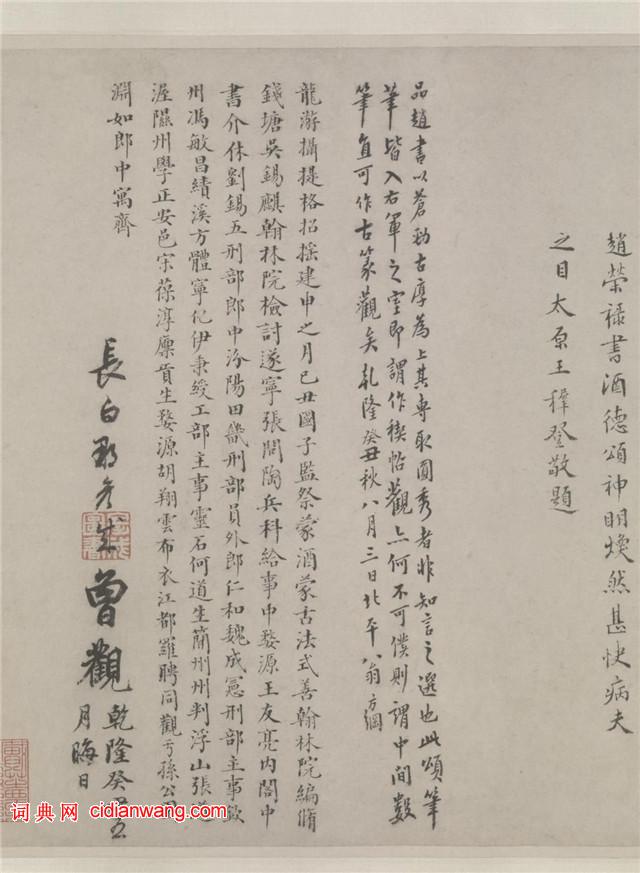 趙榮祿書酒德頌神明煥然甚快病夫
之目太原王穉登敬題
品趙書以蒼勁古厚為上其專取圓秀者非知言之選也此頌筆
筆皆入右軍之室即謂作禊帖觀亦何不可僕則謂中間數
筆直可作古篆觀矣乾隆癸丑秋八月三日北平八翁方綱
龍游攝提格招搖建申之月己丑國子監祭蒙酒蒙古法式善翰林院編脩
錢塘吳錫麒翰林院檢討遂寧張問陶兵科給事中婺源王友亮內閣中
書介休劉錫五刑部郎中汾陽田畿刑部員外郎仁和魏成憲刑部主事欽
州馮敏昌績溪方體寧化伊秉綬工部主事靈石何道生蘭州州判浮山張道
渥隰州學正安邑宋葆淳廩貢生婺源胡翔雲布衣江都羅聘同觀于孫公
淵如郎中寓齊
長白 彥成
曾觀
乾隆癸丑五
月晦日
词典网 cidianwang.com